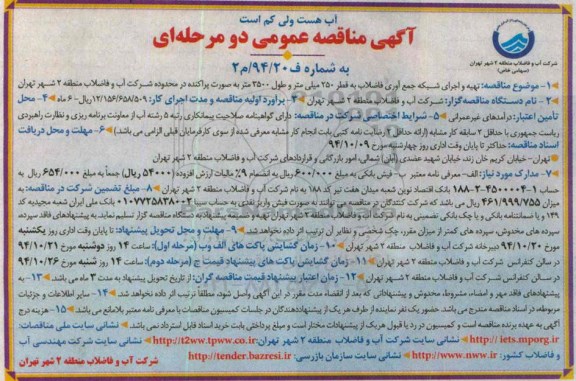 آب هست ولی کم است
آگهی مناقصه عمومی دو مرحله‌ای
به شماره ف/۹۴/۲۰/م۲
شرکت آب و فاضلاب منطقه ۲ شهر تهران
(سهامی خاص)
۱- موضوع مناقصه: تهیه و اجرای شبکه جمع آوری فاضلاب به قطر ۲۵۰ میلی متر و طول ۳۵۰۰ متر به صورت پراکنده در محدوده شرکت آب و فاضلاب منطقه ۲ شهر تهران
۲- نام دستگاه مناقصه گزار: شرکت آب و فاضلاب منطقه ۲ شهر تهران ۳- برآورد اولیه مناقصه و مدت اجرای کار: ۱۲/۱۵۶/۶۵۸/۵۰۹ ریال- ۶ ماه ۴- محل
تأمین اعتبار: درآمدهای غیرعمرانی ۵- شرایط اختصاصی شرکت در مناقصه: دارای گواهینامه صلاحیت پیمانکاری رتبه ۵ رشته آب از معاونت برنامه ریزی و نظارت راهبردی
ریاست جمهوری با حداقل ۲ سابقه کار مشابه (ارائه حداقل ۲ رضایت نامه کتبی بابت انجام کار مشابه معرفی شده از سوی کارفرمایان قبلی الزامی می باشد) ۶- مهلت و محل دریافت
اسناد مناقصه: حداکثر تا پایان وقت اداری روز چهارشنبه مورخ ۹۴/۱۰/۰۹
تهران- خیابان کریم خان زند، خیابان شهید عضدی (آبان) شمالی، امور بازرگانی و قراردادهای شرکت آب و فاضلاب منطقه ۲ شهر تهران
۷- مدارک مورد نیاز: الف- معرفی نامه معتبر ب- فیش بانکی به مبلغ ۶۰۰/۰۰۰ ریال به انضمام ۹٪ مالیات ارزش افزوده (۵۴۰۰۰ ریال) جمعاً به مبلغ ۶۵۴/۰۰۰ ریال به
حساب ۱-۴۵۰۰۰۰۴-۲-۱۸۸ بانک اقتصاد نوین شعبه میدان هفت تیر کد ۱۸۸ به نام شرکت آب و فاضلاب منطقه ۲ شهر تهران ۸- مبلغ تضمین شرکت در مناقصه: به
میزان ۴۶۱/۹۹۹/۷۵۵ ریال می باشد که شرکت کنندگان در مناقصه می توانند به صورت فیش واریز نقدی به حساب سیبا ۰۱۰۷۷۲۵۸۳۸۰۰۲ بانک ملی ایران شعبه مجیدیه کد
۱۳۹ و یا ضمانتنامه بانکی و یا چک بانکی تضمینی به نام شرکت آب و فاضلاب منطقه ۲ شهر تهران تهیه و ضمیمه پیشنهاد به دستگاه مناقصه گزار تسلیم نمایند به پیشنهادهای فاقد سپرده،
سپرده های مخدوش، سپرده های کمتر از میزان مقرر، چک شخصی و نظایر آن ترتیب اثر داده نخواهد شد. ۹- مهلت و محل تحویل پیشنهادات: تا پایان وقت اداری روز یکشنبه
مورخ ۹۴/۱۰/۲۰ دبیرخانه شرکت آب و فاضلاب منطقه ۲ شهر تهران ۱۰- زمان گشایش پاکت های الف و ب (مرحله اول): ساعت ۱۴ روز دوشنبه مورخ ۹۴/۱۰/۲۱
در سالن کنفرانس شرکت آب و فاضلاب منطقه ۲ شهر تهران ۱۱- زمان گشایش پاکت های پیشنهاد قیمت ج (مرحله دوم): ساعت ۱۴ روز شنبه مورخ ۹۴/۱۰/۲۶
در سالن کنفرانس شرکت آب و فاضلاب منطقه ۲ شهر تهران ۱۲- زمان اعتبار پیشنهاد قیمت مناقصه گران: از تاریخ تحویل پیشنهاد به مدت ۳ ماه می باشد. ۱۳- به
پیشنهادهای فاقد مهر و امضاء، مشروط، مخدوش و پیشنهاداتی که بعد از انقضاء مدت مقرر در این آگهی واصل شود، مطلقاً ترتیب اثر داده نخواهد شد. ۱۴- سایر اطلاعات و جزئیات
مربوطه، در اسناد مناقصه مندرج می باشد. حضور یک نفر نماینده از طرف هر یک از پیشنهاددهندگان در جلسات کمیسیون مناقصات با معرفی نامه معتبر بلامانع می باشد ۱۵- هزینه درج
آگهی به عهده برنده مناقصه است و کمیسیون در رد یا قبول هر یک از پیشنهادات مختار است و مبلغ پرداختی بابت خرید اسناد قابل استرداد نمی باشد. نشانی سایت ملی مناقصات:
http://iets.mporg.ir نشانی سایت شرکت آب و فاضلاب منطقه ۲ شهر تهران: http://t2ww.tpww.co.ir نشانی سایت شرکت مهندسی آب
و فاضلاب کشور: http://www.nww.ir نشانی سایت سازمان بازرسی: http://tender.bazresi.ir شرکت آب و فاضلاب منطقه ۲ شهر تهران